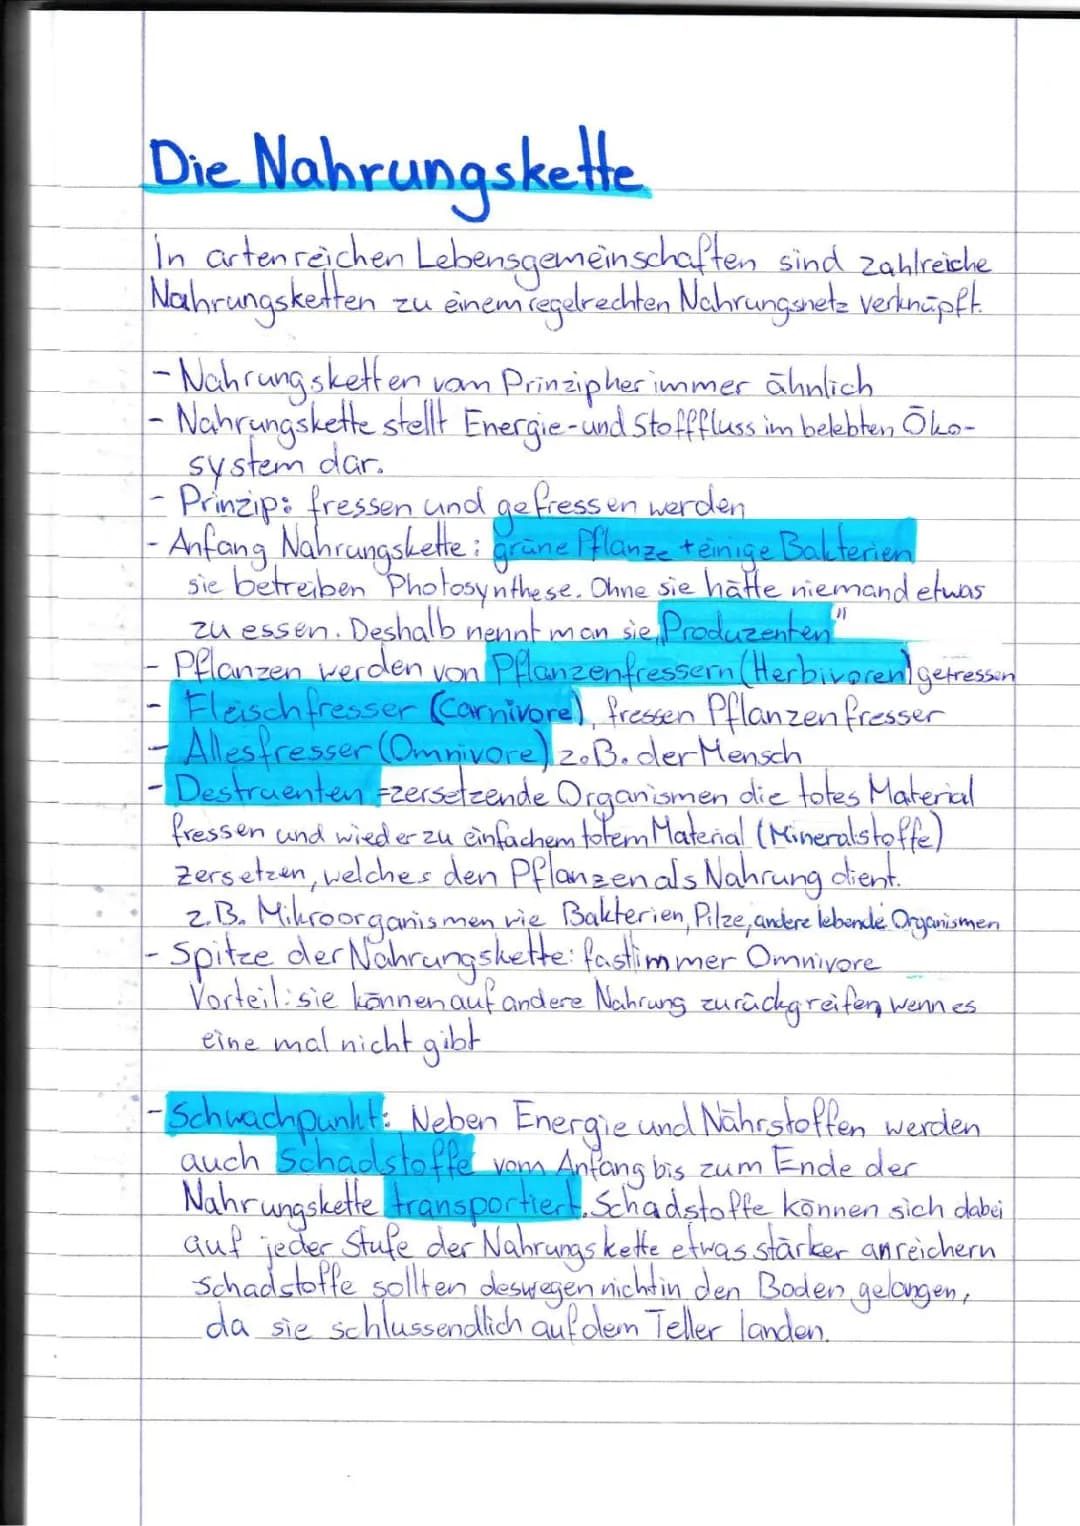 Die Nahrungskette
In artenreichen Lebensgemeinschaften sind zahlreiche
Nahrungsketten zu einem regelrechten Nahrungsnetz verknüpft.
- Nahrungsketten vom Prinzip her immer ähnlich
- Nahrungskette stellt Energie- und Stofffluss im belebten Öko-
system dar.
- Prinzip: fressen und gefressen werden
- Anfang Nahrungskette: grüne Pflanze + einige Bakterien
sie betreiben Photosynthese. Ohne sie hätte niemand etwas
zu essen. Deshalb nennt man sie „Produzenten"
- Pflanzen werden von Pflanzenfressern (Herbivoren) gefressen
- Fleischfresser (Carnivore), fressen Pflanzenfresser
- Allesfresser (Omnivore) z.B. der Mensch
- Destruenten = zersetzende Organismen die totes Material
fressen und wieder zu einfachem totem Material (Mineralstoffe)
zersetzen, welches den Pflanzen als Nahrung dient.
z.B. Mikroorganismen wie Bakterien, Pilze, andere lebende Organismen
- Spitze der Nahrungskette: fast immer Omnivore
Vorteil: sie können auf andere Nahrung zurückgreifen, wenn es
eine mal nicht gibt
- Schwachpunkt: Neben Energie und Nährstoffen werden
auch Schadstoffe vom Anfang bis zum Ende der
Nahrungskette transportiert. Schadstoffe können sich dabei
auf jeder Stufe der Nahrungskette etwas stärker anreichern
Schadstoffe sollten deswegen nicht in den Boden gelangen,
da sie schlussendlich auf dem Teller landen.